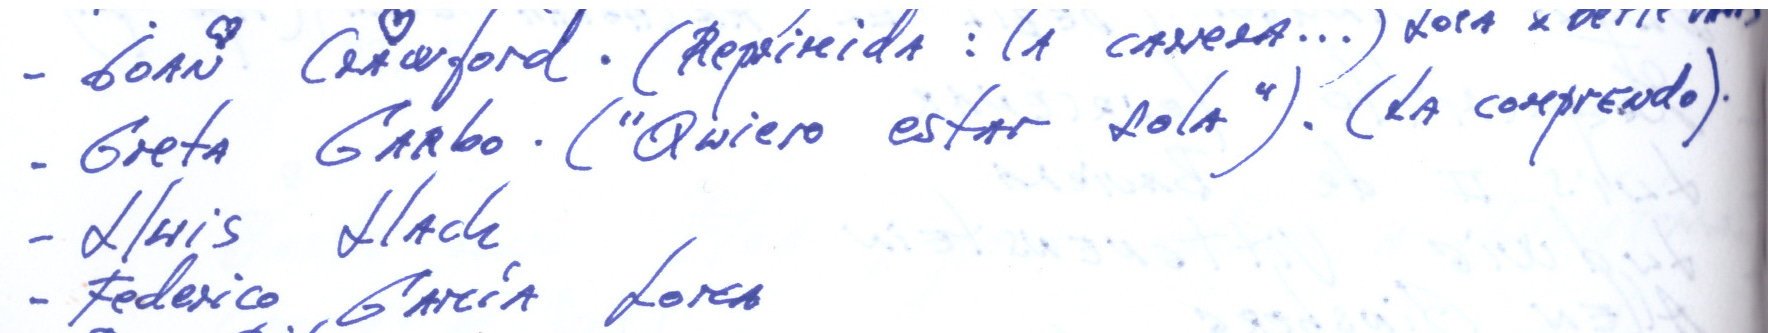 - Joan Crawford. (Reprimida: la carrera...) Loca x Bette Davis
- Greta Garbo. ("Quiero estar sola"). (La comprendo).
- Lluis Llach
- Federico García Lorca